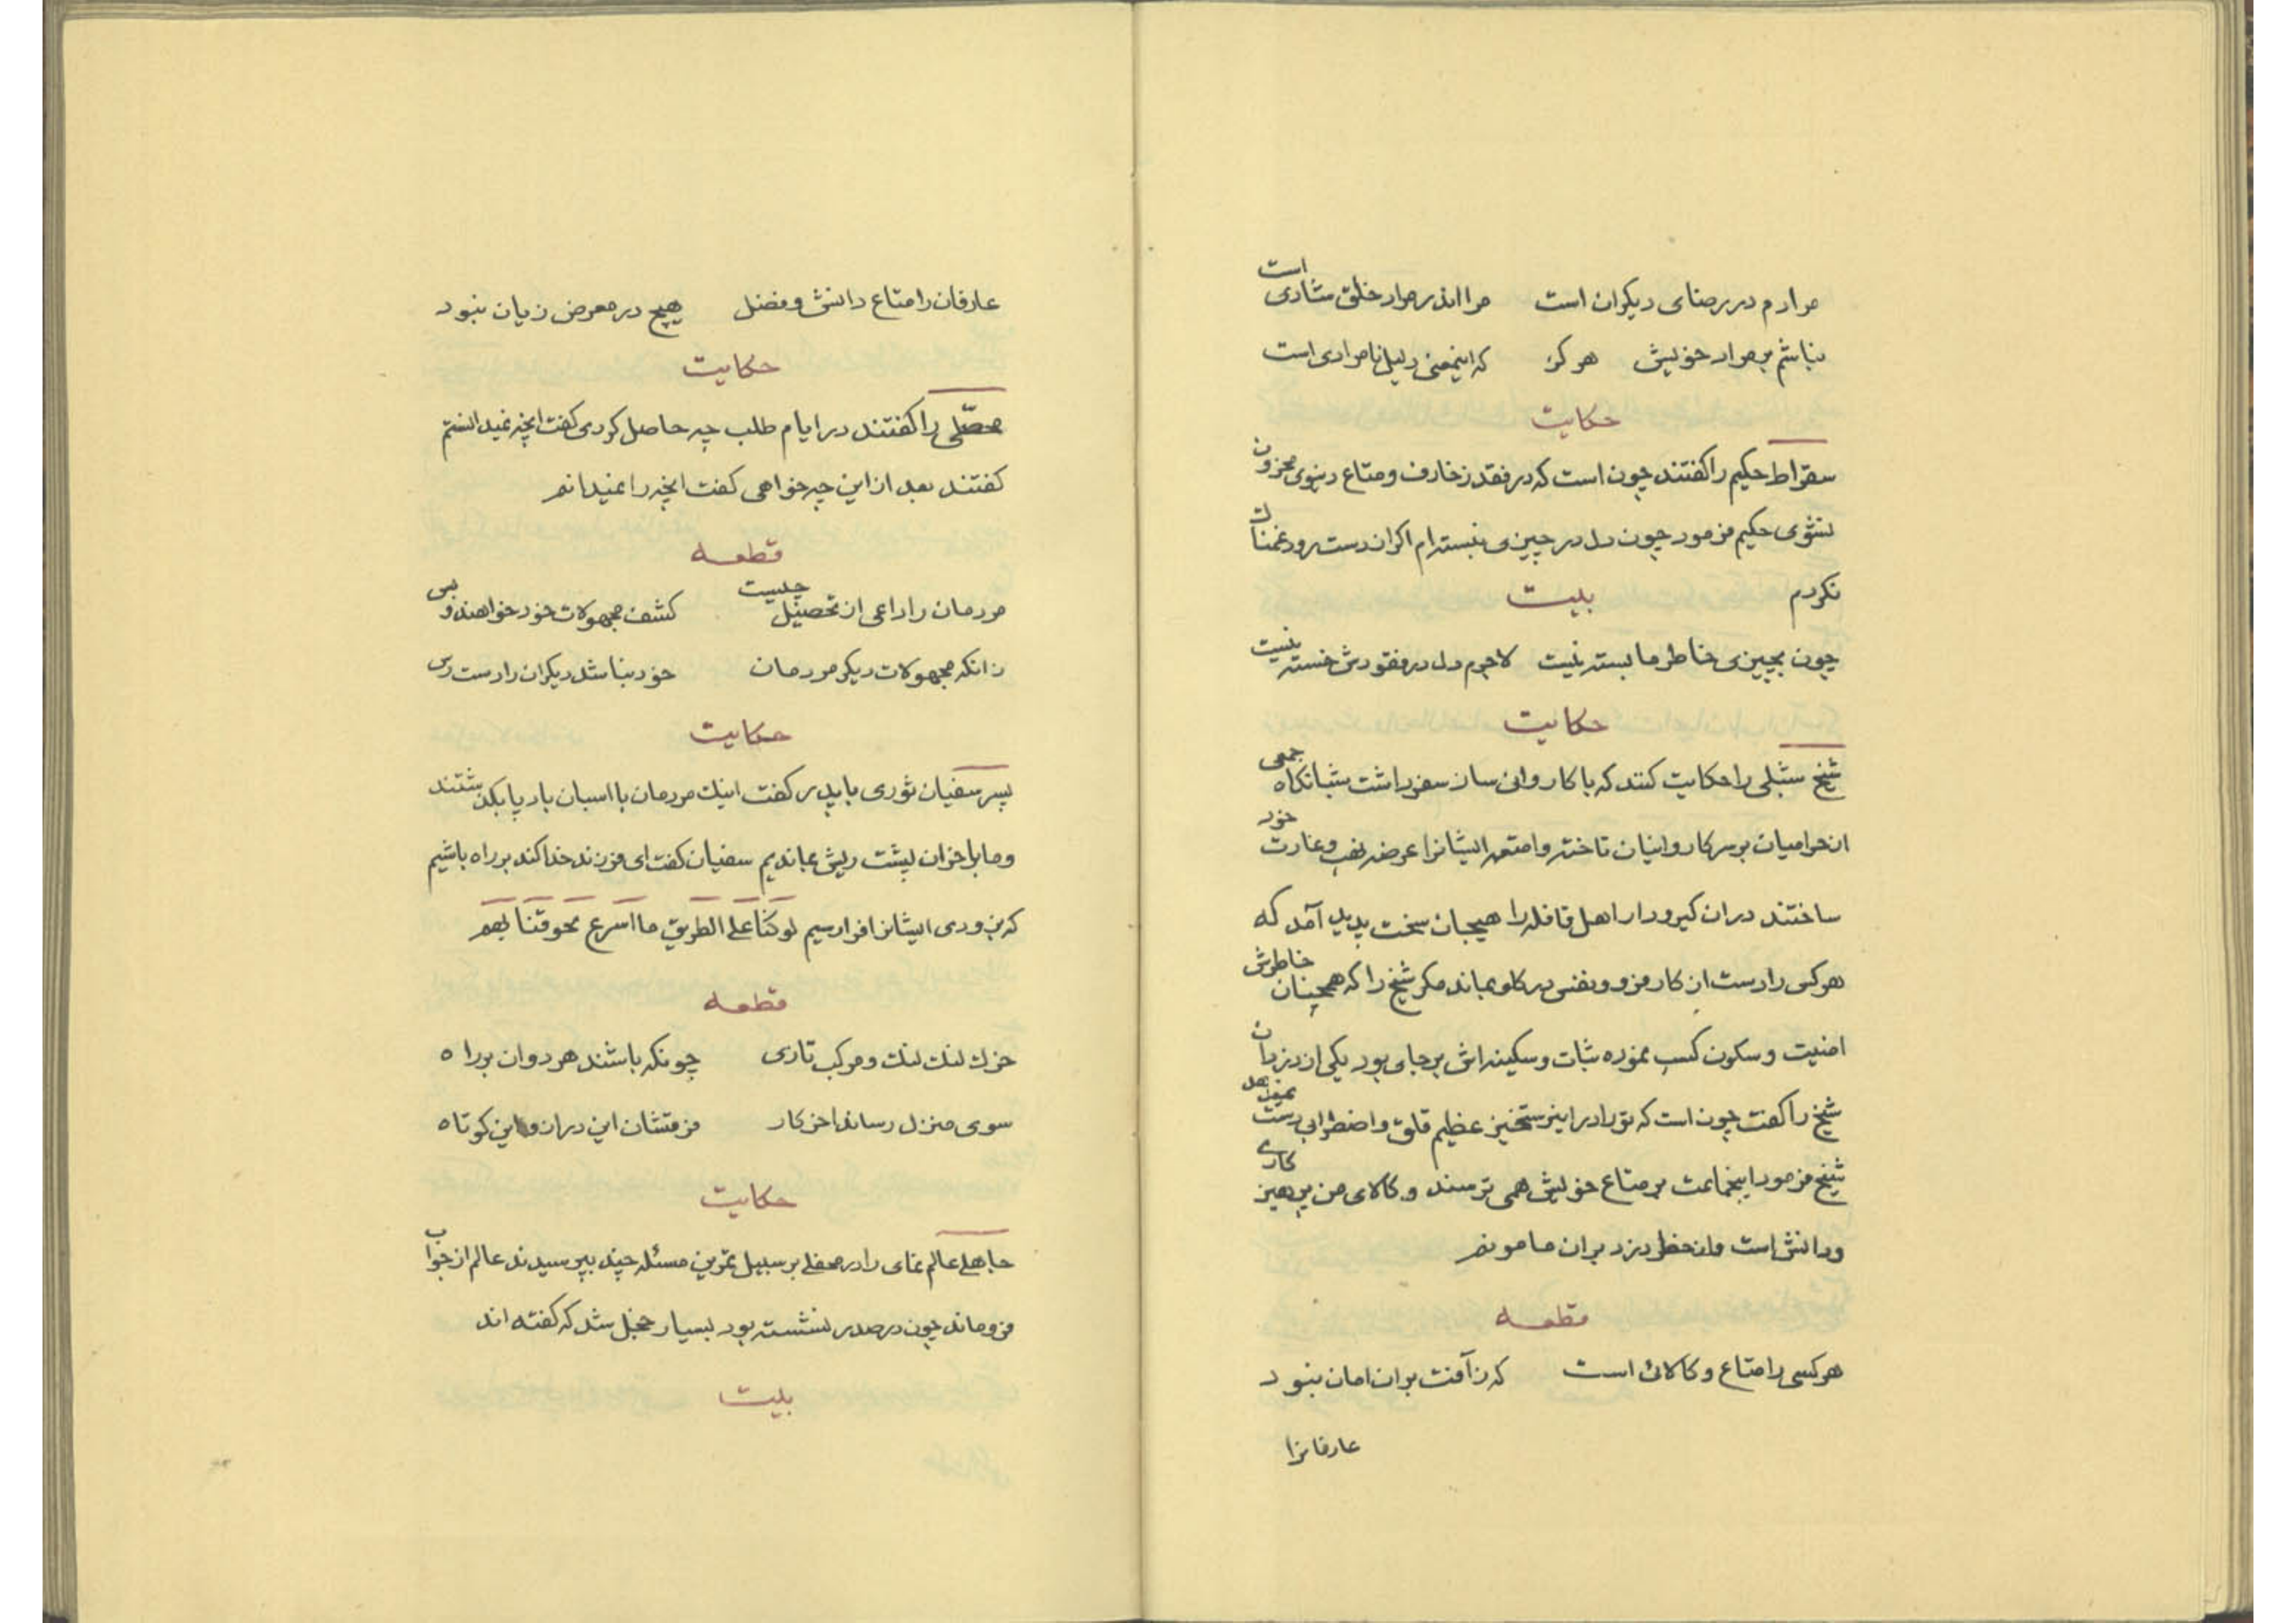 مرادم در رضای دیکران است مرا اندر مراد خلق شادی است
نباشم بر مراد خویش هرکز که اینمعنی دلیل نامرادی است
حکایت
سقراط حکیم را کفتند چون است که در فقد زخارف و متاع دنیوی محزون
نشوی حکیم فرمود چون دل در چیزی نبسته‌ام اکر از دست رود غمناک
نکردم
بیت
چون بچیزی خاطر ما بسته نیست لاجرم دل در فقودش خسته نیست
حکایت
شیخ شبلی را حکایت کنند که با کاروانی ساز سفر داشت شبانکاه جمعی
از حرامیان بر سر کاروانیان تاخته و امتعه ایشانرا عرضه نهب و غارت خود
ساختند در ان کیرودار اهل قافله را هیجان سخت پدید آمد که
هرکس را دست از کار فرو و نفس در کلو بماند مکر شیخ را که همچنان خاطرش
امنیت و سکون کسب نموده ثبات و سکینه‌اش بر جای بود یکی از دزدان
شیخ را کفت چون است که تو را در این رستخیز عظیم قلق و اضطرابی دست نمیدهد
شیخ فرمود اینجماعت بر متاع خویش همی ترسند و کالای من پرهیزکاری
و دانش است و از خطر دزد بران مامونم
قطعه
هرکسی را متاع و کالائی است که ز آفت بران امان نبود
عارفانرا
عارفان را متاع دانش و فضل هیچ در معرض زیان نبود
حکایت
محصّلی را کفتند در ایام طلب چه حاصل کردی کفت انچه نمیدانستم
کفتند بعد از این چه خواهی کفت انچه را نمیدانم
قطعه
مردمان را داعی از تحصیل چیست کشف مجهولات خود خواهند و بس
زانکه مجهولات دیکر مردمان خود نباشد دیکران را دست رس
حکایت
پسر سفیان ثوری با پدر کفت اینک مردمان با اسبان باد پا بکذشتند
و ما با خران پشت ریش بماندیم سفیان کفت ای فرزند خدا کند بر راه باشیم
که بزودی ایشانرا فرا رسیم لو کنّا علی الطریق ما اسرع لحوقنا بهم
قطعه
خرک لنک لنک و مرکب تازی چونکه باشند هر دوان بر راه
سوی منزل رساند اخر کار فرقشان این دراز و این کوتاه
حکایت
جاهلی عالم نمای را در محفلی بر سبیل تمرین مسئله چند بپرسیدند عالم از جواب
فرو ماند چون در صدر نشسته بود بسیار خجل شد که کفته اند
بیت